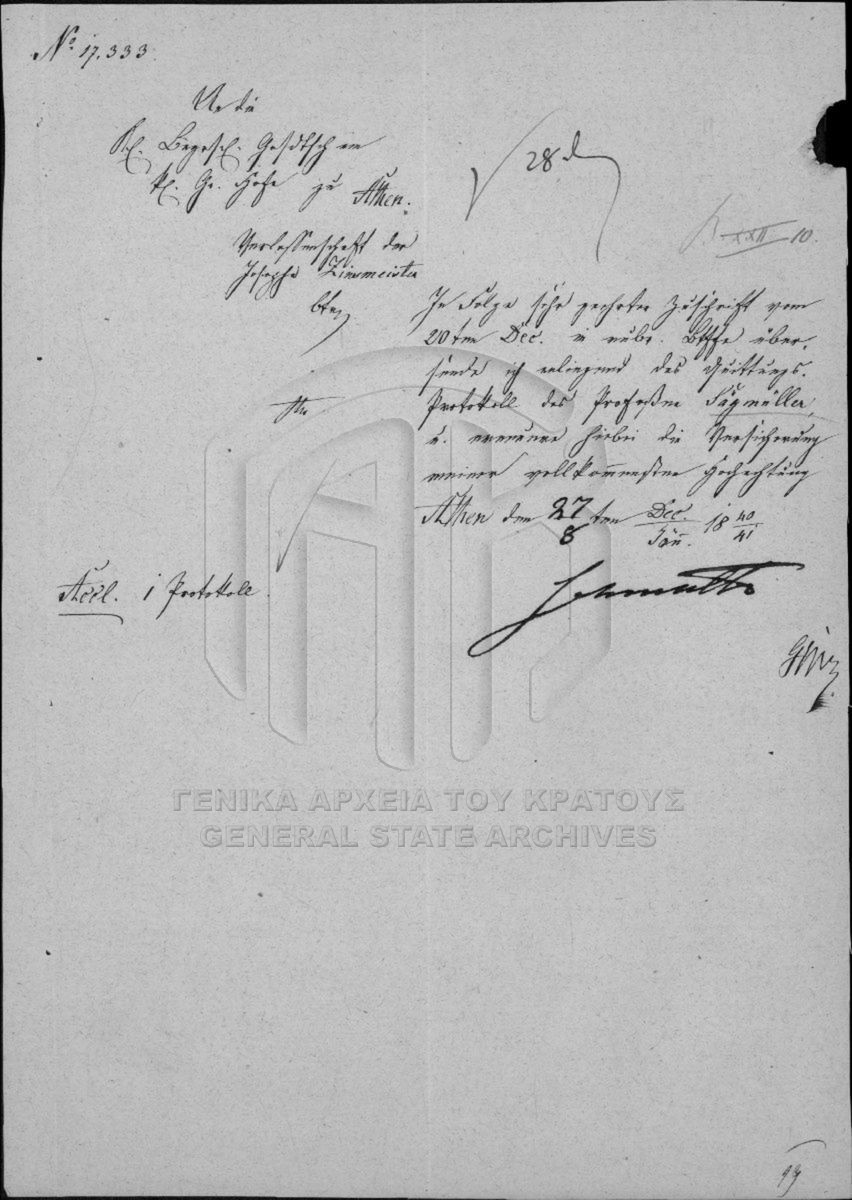 No 17,333.
An die
Kl. Bayrsch. Gesdtsch am
kl. Gr. Hofe zu Athen.
28
XXII 10.
Verlassenschaft der
Josepha Zinsmeister
btr
In Folge sehr geehrter Zuschrift vom
20ten Dec. in nubr. Btffe über-
sende ich anliegend das Quittungs-
Protokoll des Professor Sägmüller,
u. erneuere hiebei die Versicherung
meiner vollkommensten Hochachtung
Athen den 27/8 ten Dec./Jän. 18 40/41
1 Protokoll.
ΓΕΝΙΚΑ ΑΡΧΕΙΑ ΤΟΥ ΚΡΑΤΟΥΣ
GENERAL STATE ARCHIVES